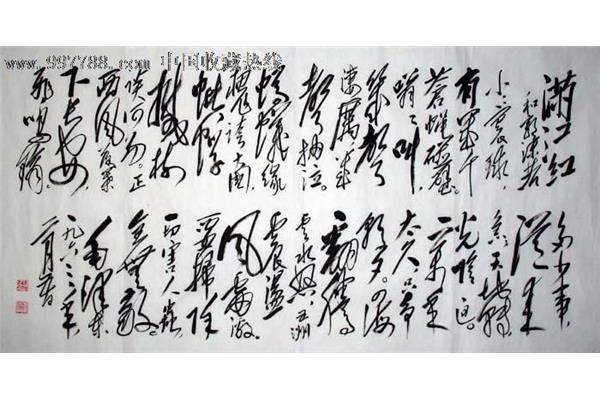 www.997788.com 中国收藏热线
滿江红
和郭沫若
小小寰球，
有幾个
苍蝇碰壁。
嗡嗡叫，
几声
凄厉，几
声抽泣。
蚂蚁缘
槐誇大國，
蚍蜉
撼树
谈何易。正
西风落葉
下长安，
飞鸣镝。
多少事，
从来
急；天地转，
光阴迫。
一万年
太久，只争
朝夕。四海
翻腾
云水怒，五洲
震荡
风雷激。
要掃除
一切害人虫，
全无敌。
毛泽东
一九六三年